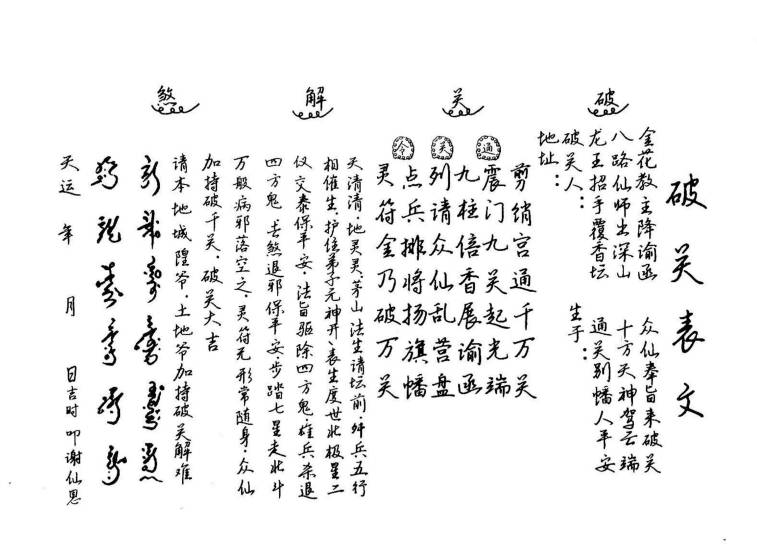 破关解煞
破关表文
金花教主降谕函 众仙奉旨来破关
八路仙师出深山 十方天神驾云端
龙王招手覆香坛 通关别幡人平安
破关人： 生于：
地址：
通关令
剪绡宫通千万关
震门九关起光端
九柱信香展谕函
列请众仙乱营盘
点兵排将扬旗幡
灵符金乃破万关
天清清，地灵灵，茅山法生请坛前，兵五行
相催生，护住弟子元神开，表生度世北极星，二
仪交泰保平安，法旨驱除四方鬼，雄兵杀退
四方鬼，去煞退邪保平安，步踏七星走北斗
万般病邪落空之，灵符无形常随身，众仙
加持破千关，破关大吉
请本地城隍爷，土地爷加持破关解难
天运 年 月 日吉时 叩谢仙恩